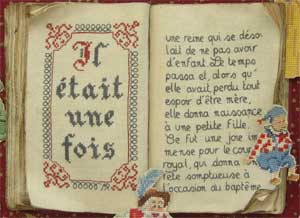 Il
était
une
fois
une reine qui se déso
lait de ne pas avoir
d'enfant Le temps
passa et, alors qu'
elle avait perdu tout
espoir d'être mère,
elle donna naissance
à une petite fille.
Ce fut une joie im
mense pour le cour
royal, qui donna
fête somptueuse à
l'occasion du baptême